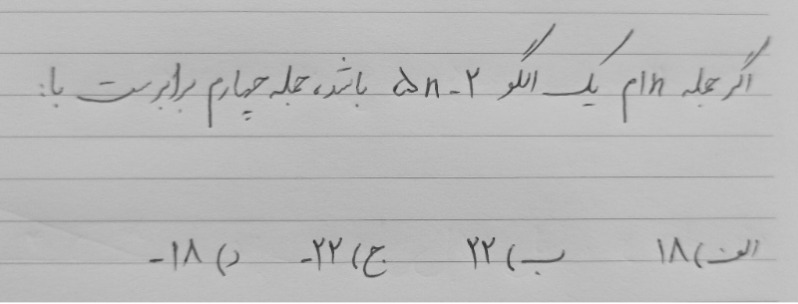 اگر جمله nام یک الگو ۵n-۲ باشد، جمله چهارم برابرست با:
الف) ۱۸ ب) ۲۲ ج) ۲۲- د) ۱۸-